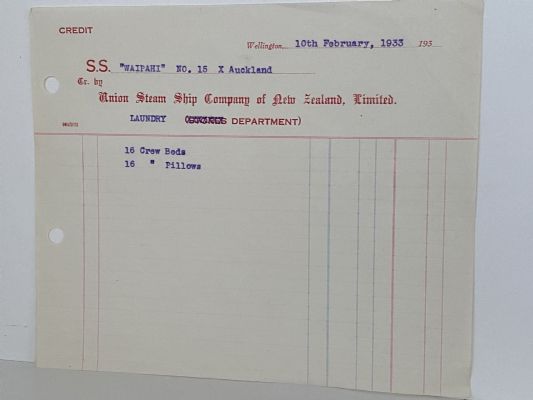 CREDIT
Wellington, 10th February, 1933 193
S.S. "WAIPAHI" NO. 15 X Auckland
Cr. by
Union Steam Ship Company of New Zealand, Limited.
LAUNDRY (STORES DEPARTMENT)
16 Crew Beds
16 " Pillows